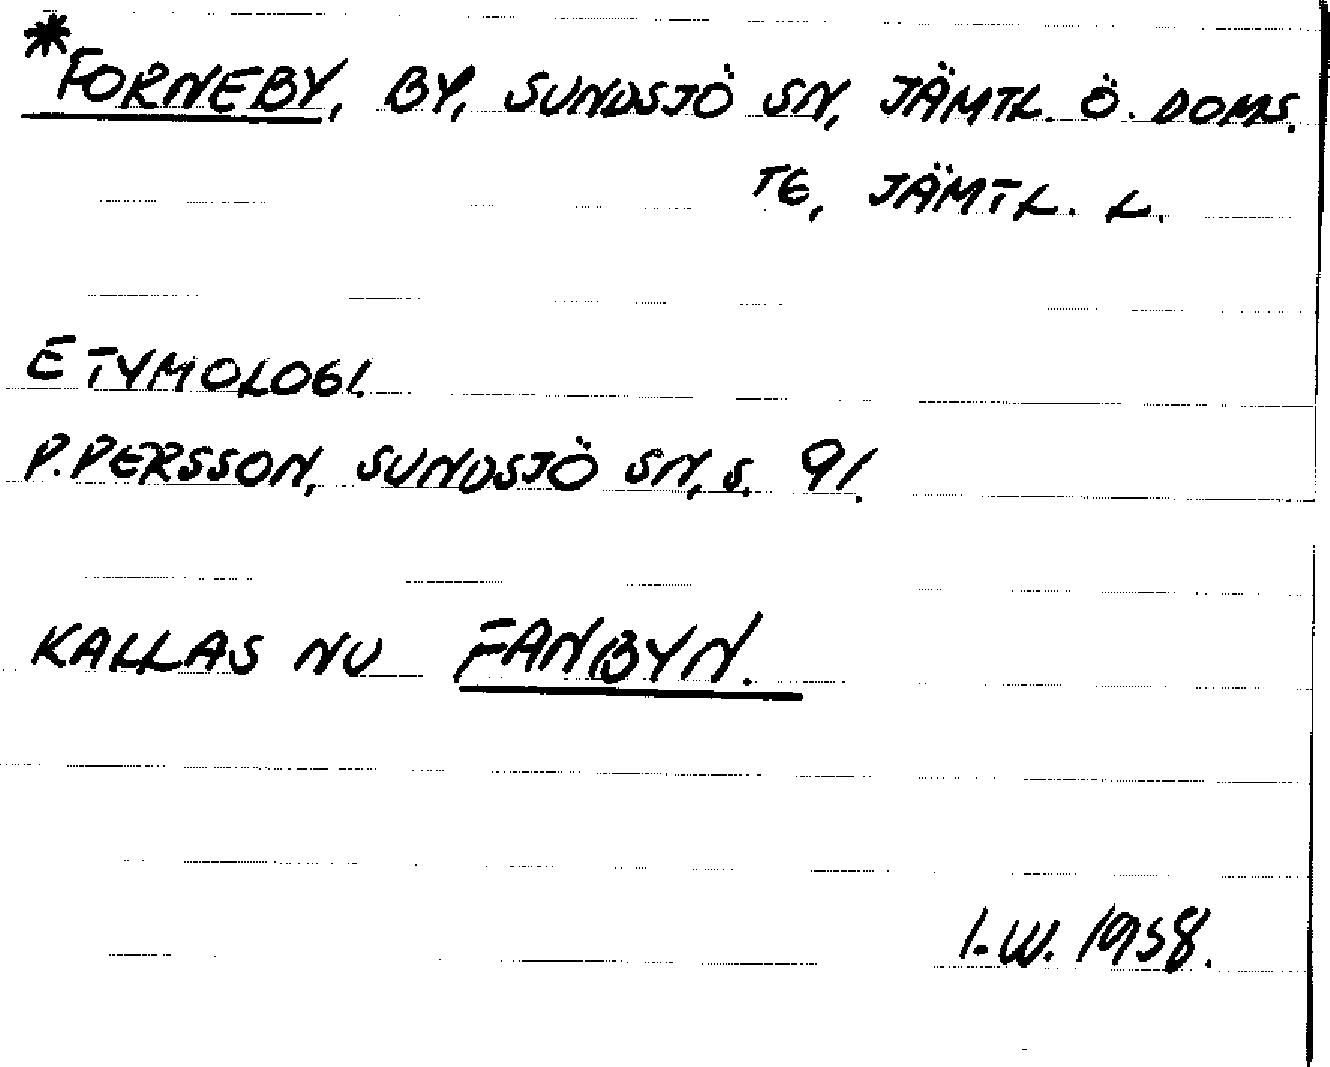 *FORNEBY, BY, SUNDSJÖ SN, JÄMTL. Ö. DOMS.
TG, JÄMTL. L.
ETYMOLOGI.
P. PERSSON, SUNDSJÖ SN, S. 91.
KALLAS NU FANBYN.
I. W. 1958.